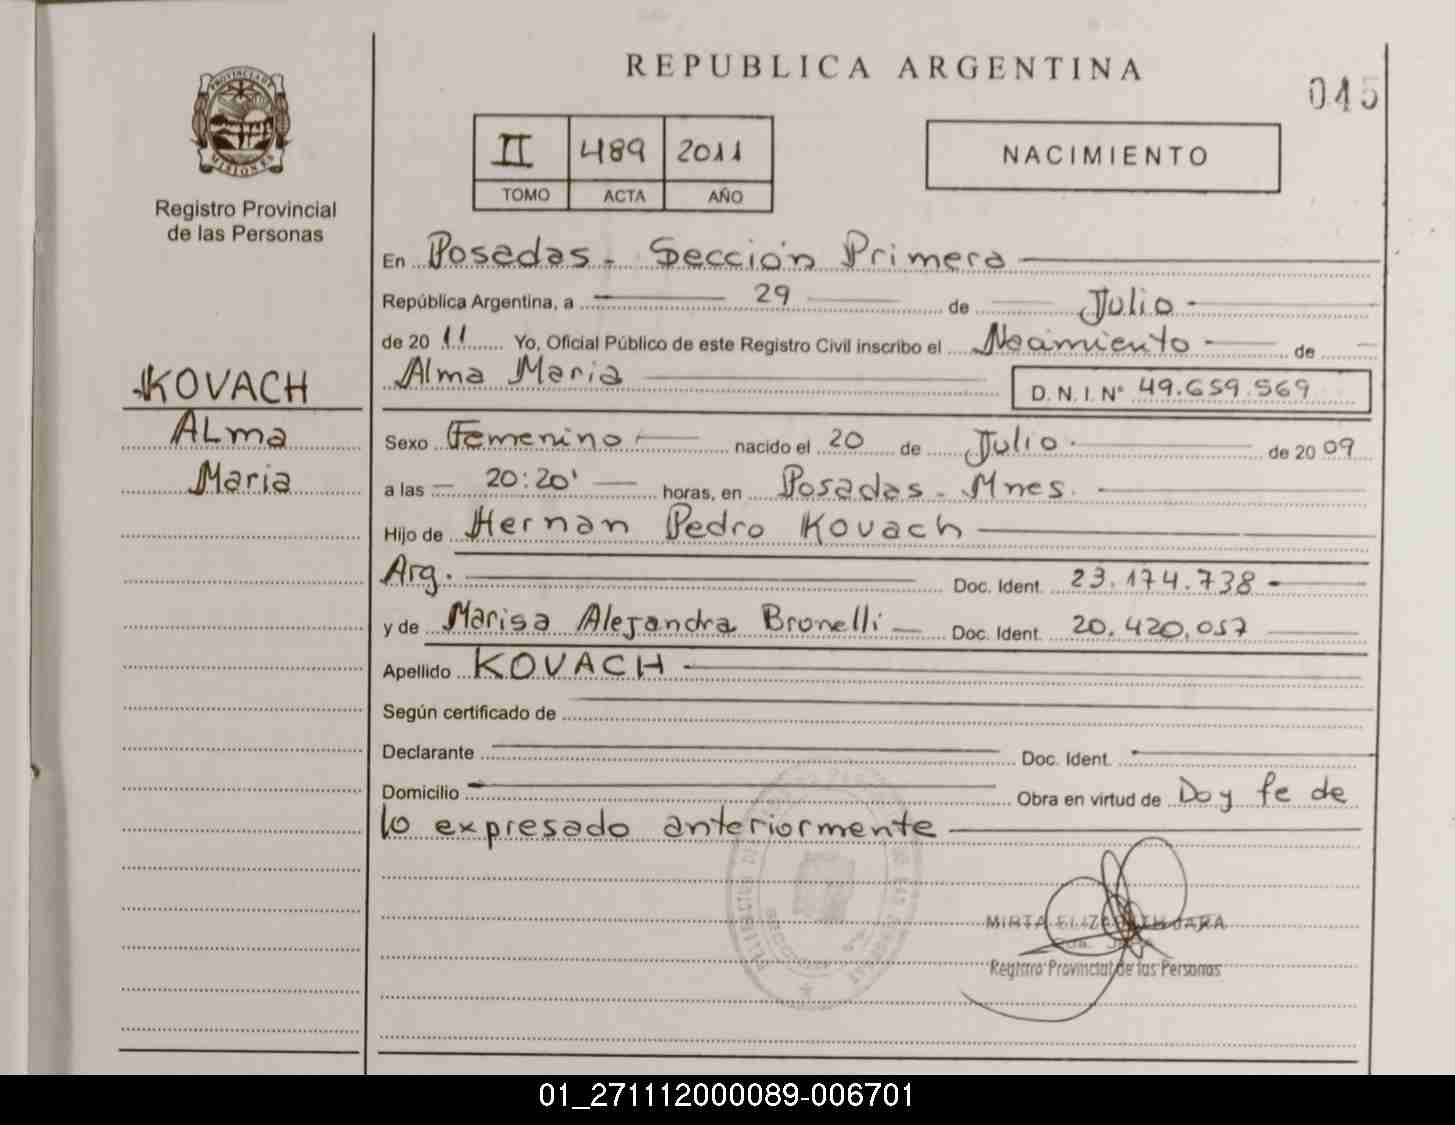 PROVINCIA DE
MISIONES
Registro Provincial
de las Personas
KOVACH
ALma
Maria
REPUBLICA ARGENTINA
045
II 489 2011
TOMO ACTA AÑO
NACIMIENTO
En Posadas - Sección Primera
República Argentina, a 29 de Julio
de 2011 Yo, Oficial Público de este Registro Civil inscribo el Nacimiento de
Alma Maria D.N.I. N° 49.659.569
Sexo Femenino nacido el 20 de Julio de 2009
a las 20:20' horas, en Posadas - Mnes.
Hijo de Hernan Pedro Kovach
Arg. Doc. Ident. 23.174.738
y de Marisa Alejandra Bronelli Doc. Ident. 20.420.057
Apellido KOVACH
Según certificado de
Declarante Doc. Ident.
Domicilio Obra en virtud de Doy fe de
lo expresado anteriormente
MIRTA ELIZABETH JARA
Registro Provincial de las Personas
01_271112000089-006701